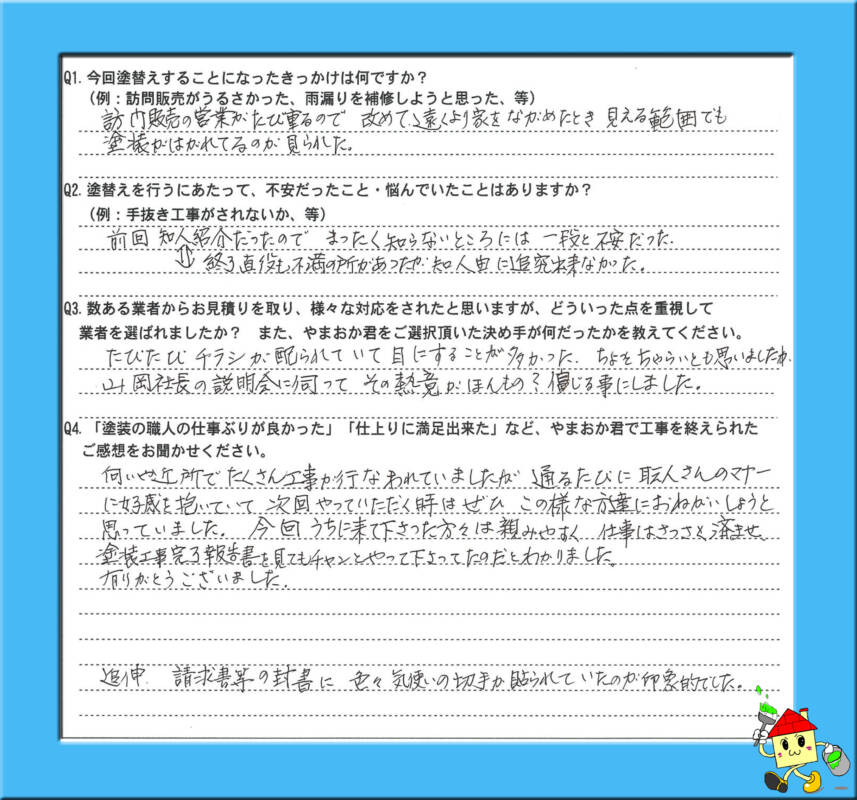 Q1. 今回塗替えすることになったきっかけは何ですか？
（例：訪問販売がうるさかった、雨漏りを補修しようと思った、等）
訪門販売の営業がたび重るので 改めて遠くより家をながめたとき 見える範囲でも
塗装がはがれてるのが見られた。
Q2. 塗替えを行うにあたって、不安だったこと・悩んでいたことはありますか？
（例：手抜き工事がされないか、等）
前回 知人紹介だったので まったく知らないところには 一段と不安だった.
⇕ 終了直後も不満の所があったが知人由に追究出来なかった。
Q3. 数ある業者からお見積りを取り、様々な対応をされたと思いますが、どういった点を重視して
業者を選ばれましたか？ また、やまおか君をご選択頂いた決め手が何だったかを教えてください。
たびたび チラシが配られていて目にすることが多かった. ちょとちゃらいとも思いましたが.
山岡社長の説明会に伺って その熱意がほんもの？信じる事にしました。
Q4. 「塗装の職人の仕事ぶりが良かった」「仕上りに満足出来た」など、やまおか君で工事を終えられた
ご感想をお聞かせください。
近所でたくさん工事が行なわれていましたが 通るたびに 職人さんのマナー
に好感を抱いていて 次回やっていただく時はぜひ この様な方達におねがいしようと
思っていました。 今回 うちに来て下さった方々は親みやすく 仕事はさっさと済ませ.
塗装工事完了報告書を見てもチャンとやって下さってたのだとわかりました。
有りがとうございました.
追伸. 請求書等の封書に 色々気使いの切手が貼られていたのが印象的でした。